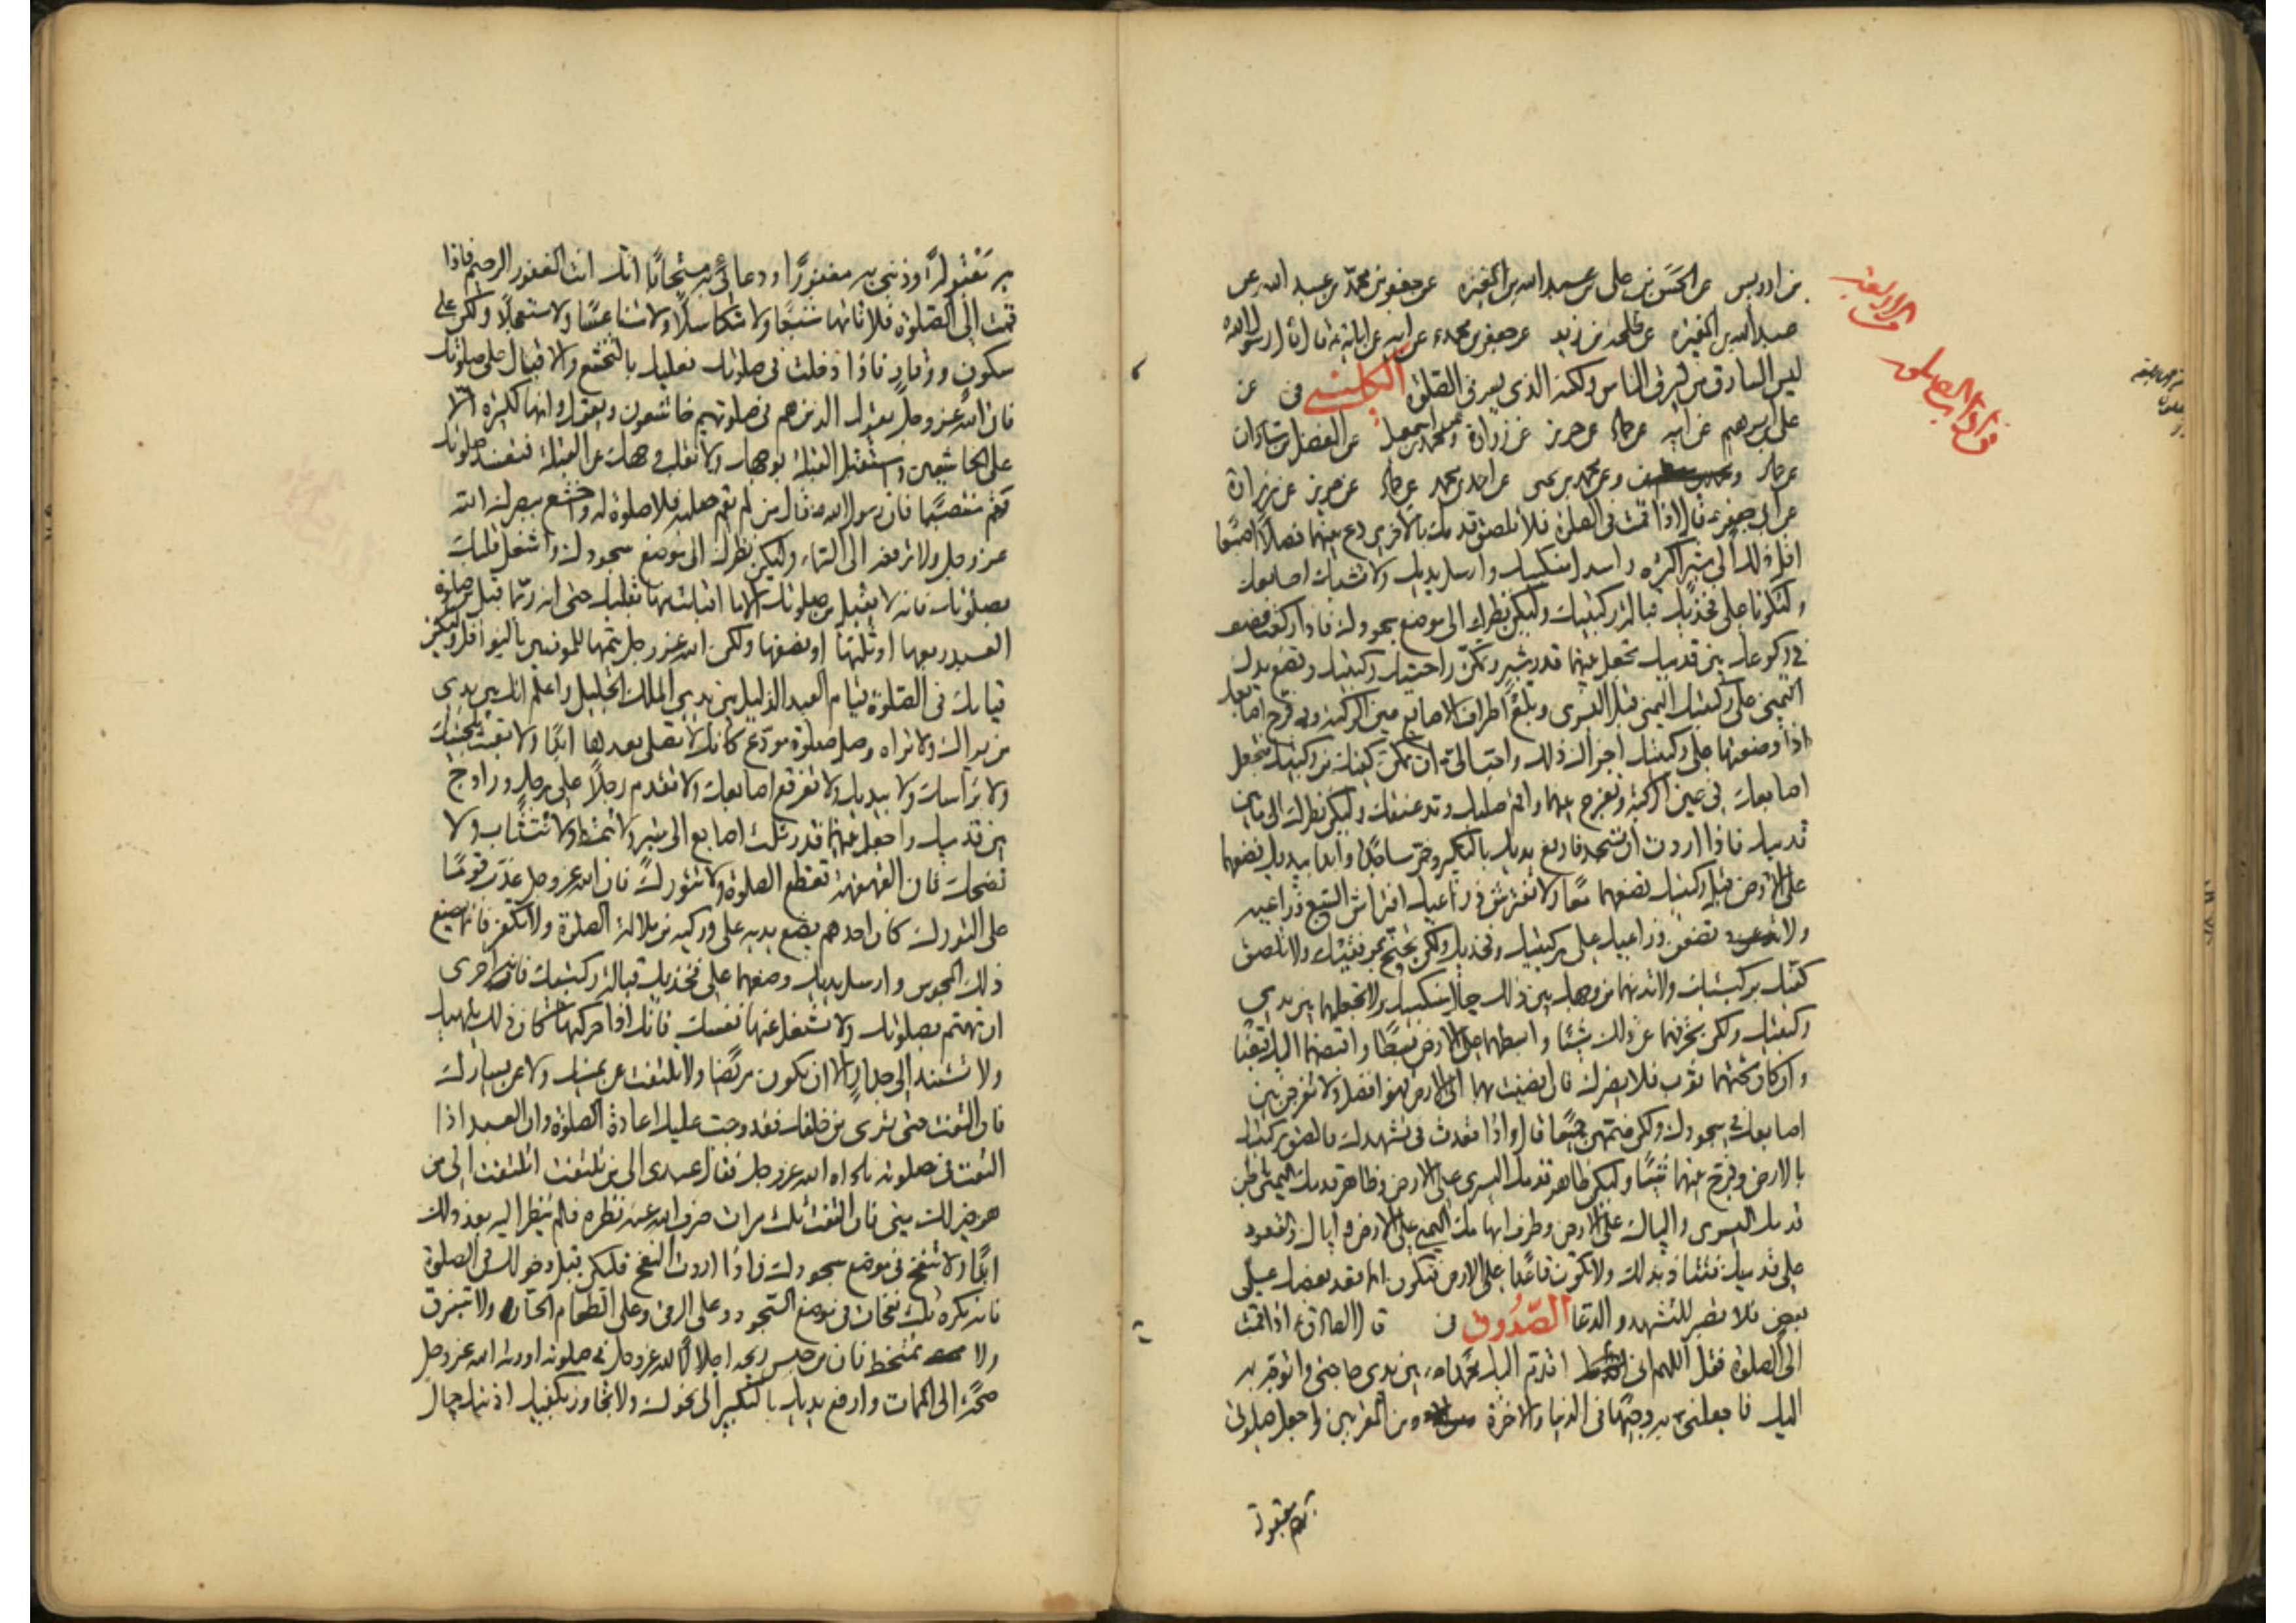 بن ادريس عن الحسن بن علي عن عبد الله بن المغيرة عن جعفر بن محمد بن عبيد الله عن
عبد الله بن المغيرة عن طلحة بن زيد عن جعفر بن محمد عن ابيه عن ابائه ع قال قال رسول الله
ليس السارق من يسرق الناس ولكنه الذي يسرق الصلوة الكليني في عن
علي بن ابرهيم عن ابيه عن حماد عن حريز عن زرارة وعن محمد بن اسمعيل عن الفضل بن شاذان
عن حماد وعن محمد بن يحيى عن احمد بن محمد عن حماد عن حريز عن زرارة
عن ابي جعفر ع قال اذا قمت في الصلوة فلا تلصق قدمك بالاخرى دع بينهما فصلا اصبعا
اقل ذلك الى شبر اكثره واسدل منكبيك وارسل يديك ولا تشبك اصابعك
وليكونا على فخذيك قبالة ركبتيك وليكن نظرك الى موضع سجودك فاذا ركعت فصف
في ركوعك بين قدميك تجعل بينهما قدر شبر وتمكن راحتيك من ركبتيك وتضع يدك
اليمنى على ركبتك اليمنى قبل اليسرى وبلغ اطراف الاصابع عين الركبة وفرج اصابعك
اذا وضعتها على ركبتيك اجزاك ذلك واحب الي ان تمكن كفيك من ركبتيك فتجعل
اصابعك في عين الركبة وتفرج بينهما واقم صلبك ومد عنقك وليكن نظرك الى ما بين
قدميك فاذا اردت ان تسجد فارفع يديك بالتكبير وخر ساجدا وابدأ بيديك فضعهما
على الارض قبل ركبتيك تضعهما معا ولا تفترش ذراعيك افتراش السبع ذراعيه
ولا تضعن ذراعيك على ركبتيك وفخذيك ولكن تجنح بمرفقيك ولا تلصق
كفيك بركبتيك ولا تدنهما من وجهك بين ذلك حيال منكبيك ولا تجعلهما بين يدي
ركبتيك ولكن تحرفهما عن ذلك شيئا وابسطهما على الارض بسطا واقبضهما اليك قبضا
وان كان تحتهما ثوب فلا يضرك فان افضيت بهما الى الارض فهو افضل ولا تفرجن بين
اصابعك في سجودك ولكن ضمهن جميعا قال واذا قعدت في تشهدك فالصق ركبتيك
بالارض وفرج بينهما شيئا وليكن ظاهر قدمك اليسرى على الارض وظاهر قدمك اليمنى على باطن
قدمك اليسرى والياك على الارض وطرف ابهامك اليمنى على الارض واياك والقعود
على قدميك فتتأذى بذلك ولا تكون قاعدا على الارض فتكون انما قعد بعضك على
بعض فلا تصبر للتشهد والدعا الصدوق في ق ال الصادق ع اذا قمت
الى الصلوة فقل اللهم اني اقدم اليك محمدا ص بين يدي حاجتي واتوجه به
اليك فاجعلني به وجيها في الدنيا والاخرة ومن المقربين واجعل صلوتي
به مقبولة
به مقبولة وذنبي به مغفورا ودعائي به مستجابا انك انت الغفور الرحيم فاذا
قمت الى الصلوة فلا تاتها شبعا ولا متكاسلا ولا متناعسا ولا مستعجلا ولكن على
سكون ووقار فاذا دخلت في صلوتك فعليك بالتخشع والاقبال على صلوتك
فان الله عز وجل يقول الذين هم في صلوتهم خاشعون ويقول وانها لكبيرة الا
على الخاشعين واستقبل القبلة بوجهك ولا تقلب وجهك عن القبلة فتفسد صلوتك
وقم منتصبا فان رسول الله ص قال من لم يقم صلبه فلا صلوة له واخشع ببصرك لله
عز وجل ولا ترفعه الى السماء وليكن نظرك الى موضع سجودك واشغل قلبك
بصلوتك فانه لا يقبل من صلوتك الا ما اقبلت منها بقلبك حتى انه ربما قبل من صلوة
العبد ربعها او ثلثها او نصفها ولكن الله عز وجل يتمها للمؤمنين بالنوافل وليكن
قيامك في الصلوة قيام العبد الذليل بين يدي الملك الجليل واعلم انك بين يدي
من يراك ولا تراه وصل صلوة مودع كانك لا تصلي بعدها ابدا ولا تعبث بلحيتك
ولا براسك ولا بيديك ولا تفرقع اصابعك ولا تقدم رجلا على رجل وزاوج
بين قدميك واجعل بينهما قدر ثلث اصابع الى شبر ولا تتمط ولا تتثاب ولا
تضحك فان القهقهة تقطع الصلوة ولا تتورك فان الله عز وجل عذب قوما
على التورك كان احدهم يضع يديه على وركيه من ملالة الصلوة ولا تكفر فانما يصنع
ذلك المجوس وارسل يديك وضعهما على فخذيك قبالة ركبتيك فانه احرى
ان تهتم بصلوتك ولا تشتغل عنها نفسك فانك اذا حركتها كان ذلك يلهيك
ولا تستند الى جدار الا ان تكون مريضا ولا تلتفت عن يمينك ولا عن يسارك
فان التفت حتى ترى من خلفك فقد وجبت عليك اعادة الصلوة وان العبد اذا
التفت في صلوته ناداه الله عز وجل فقال عبدي الى من تلتفت اتلتفت الى من
هو خير لك مني فان التفت ثلث مرات صرف الله عنه نظره فلم ينظر اليه بعد ذلك
ابدا ولا تنفخ في موضع سجودك فاذا اردت النفخ فليكن قبل دخولك في الصلوة
فانه يكره ثلث نفخات في موضع السجود وعلى الرقى وعلى الطعام الحار ولا تبزق
ولا تمتخط فان من حبس ريحه اجلالا لله عز وجل في صلوته اورثه الله عز وجل
صحة الى الممات وارفع يديك بالتكبير الى نحرك ولا تجاوز بكفيك اذنيك حيال